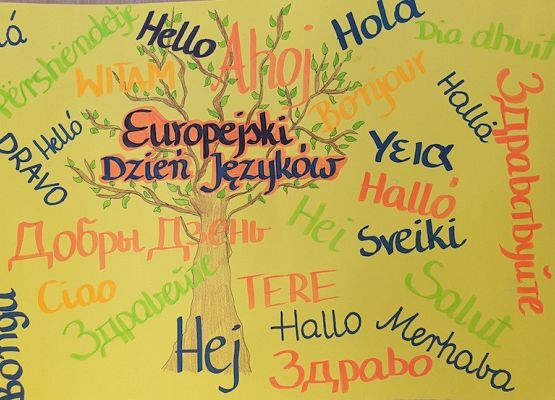 Përshëndetje
Hello
Ahoj
Hola
Dia dhuit
WITAM
Bonjour
Hallå
Здравствуйте
Helló
DRAVO
Europejski
Dzień Języków
γεια
Halló
Добры Дзень
Hei
Sveiki
Ciao
Здравейте
TERE
Salut
Hej
Hallo
Merhaba
Здраво